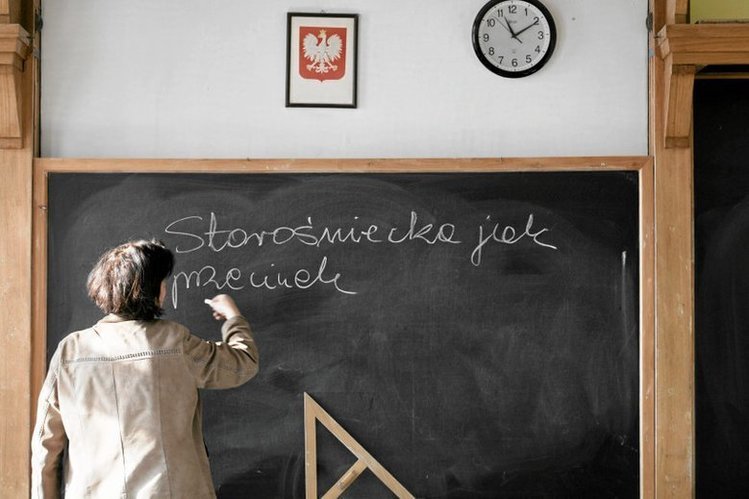 12
1
2
3
4
5
6
7
8
9
10
11
Starośniecka jak
przecinek